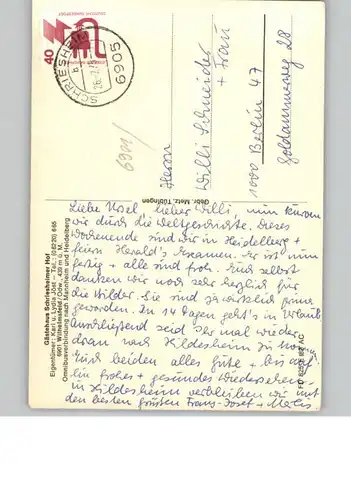 Gästehaus Schriesheimer Hof
Eigentümer: Karl u. Lydia Jöst – Tel.: (06220) 665
6901 Wilhelmsfeld/Odw., 436 m ü. M.
Omnibusverbindung nach Mannheim und Heidelberg
Gebr. Metz, Tübingen
DEUTSCHE BUNDESPOST
40
SCHRIESHEIM
b
6905
6901/
Herrn
Willi Schneider
+ Frau
1000 Berlin 47
Goldammerweg 28
Liebe Ursel, lieber Willi, nun kurven
wir durch die Weltgeschichte. Dieses
Wochenende sind wir in Heidelberg +
feiern Harald's Examen. Er ist nun
fertig + alle sind froh. Euch selbst
danken wir noch sehr herzlich für
die Bilder. Sie sind ja wirklich prima
geworden. In 14 Tagen geht's in Urlaub.
Anschließend seid Ihr mal wieder
dran nach Hildesheim zu kommen.
Euch beiden alles Gute + bis auf
ein frohes + gesundes Wiedersehen
in Hildesheim verbleiben wir mit
den besten Grüßen Franz-Josef +